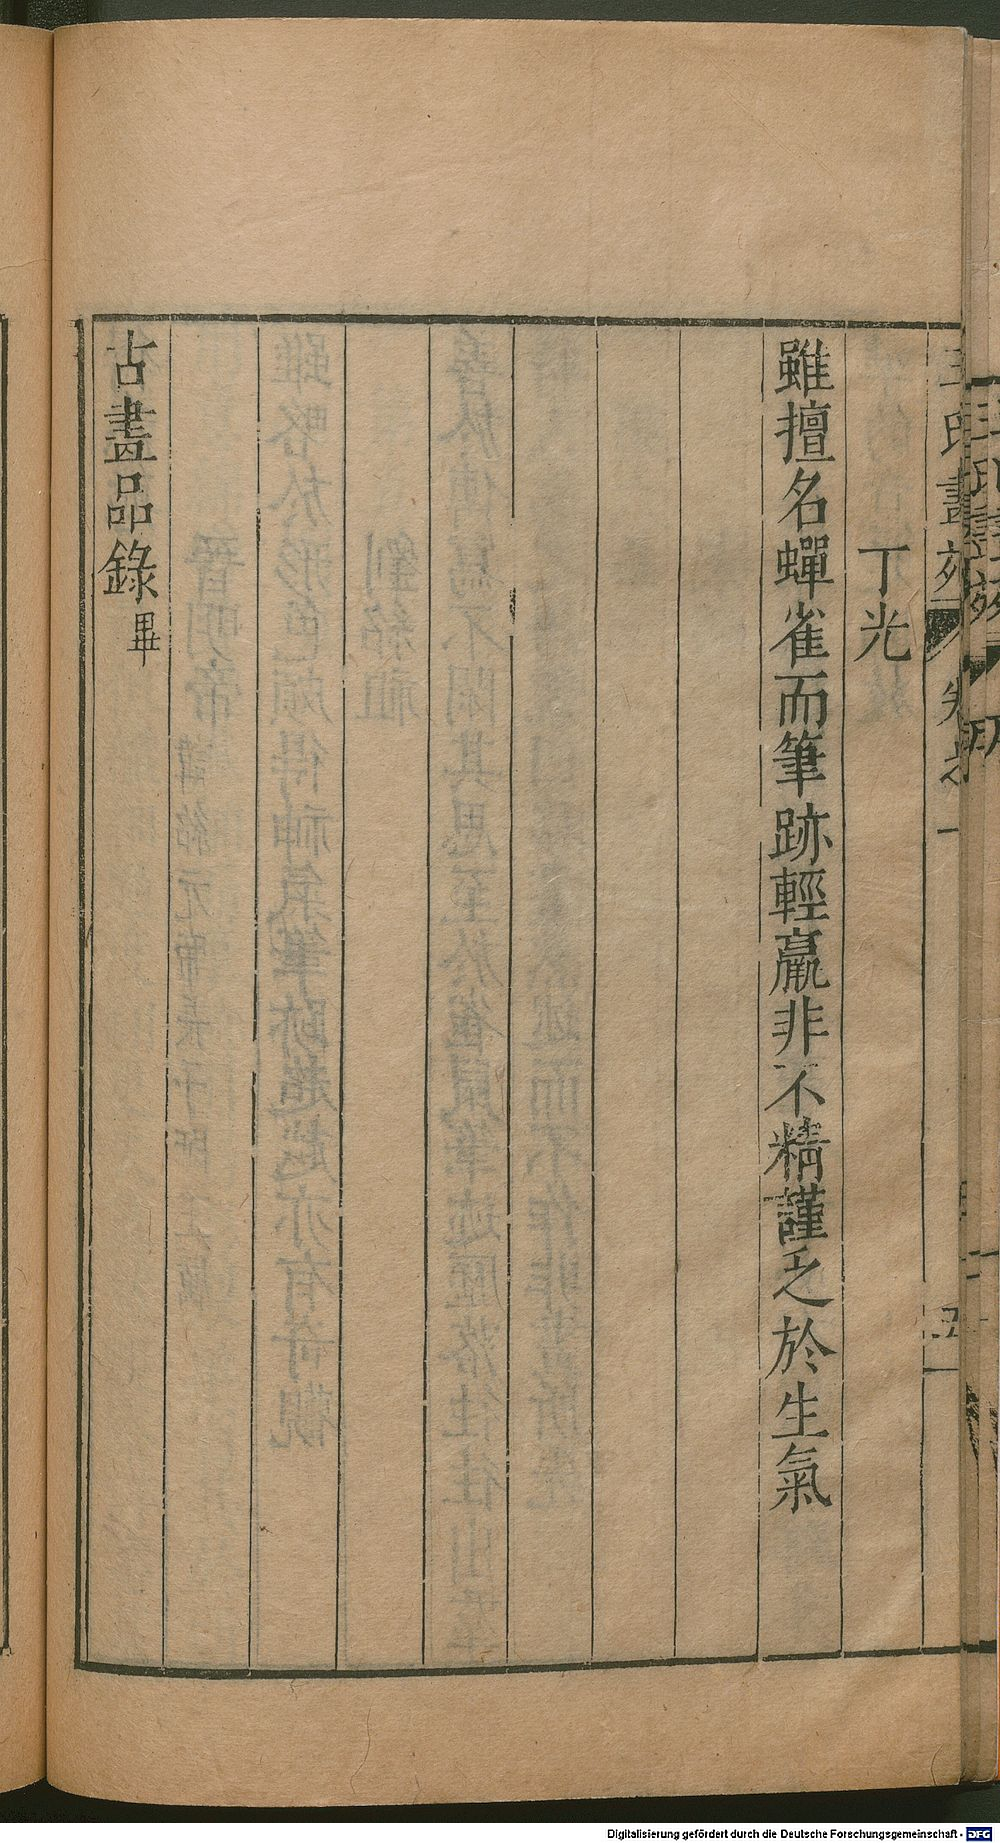 王氏畫苑 卷之一
五
丁光
雖擅名蟬雀而筆跡輕羸非不精謹乏於生氣
古畫品錄畢
Digitalisierung gefördert durch die Deutsche Forschungsgemeinschaft - DFG